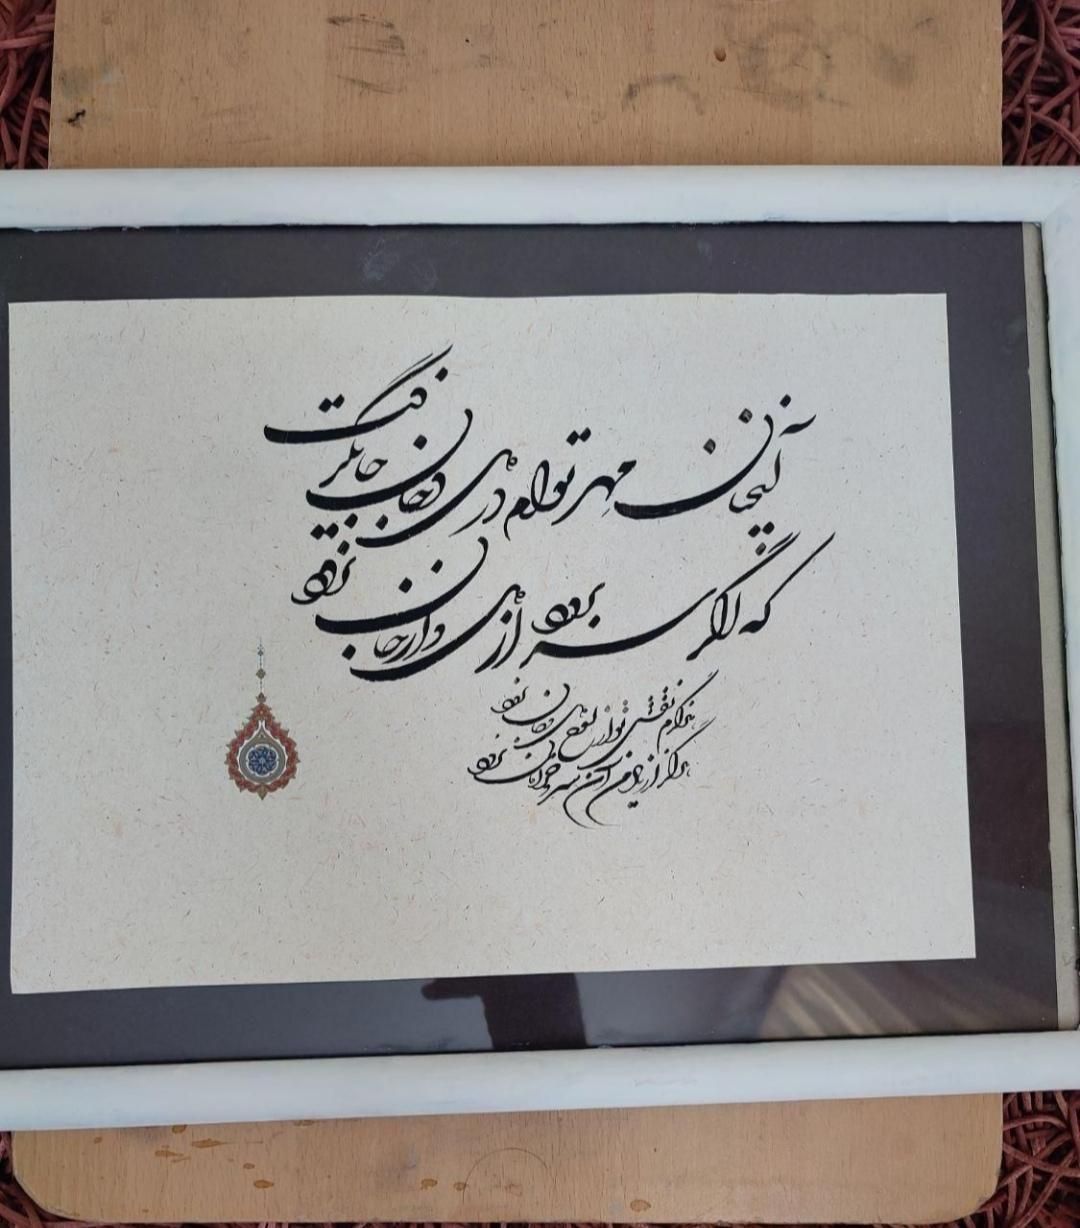 آنچنان مهر توام در دل و جان جای گرفت
که اگر سر برود از دل و از جان نرود
هرگزم نقش تو از لوح دل و جان نرود
هرگز از یاد من آن سرو خرامان نرود